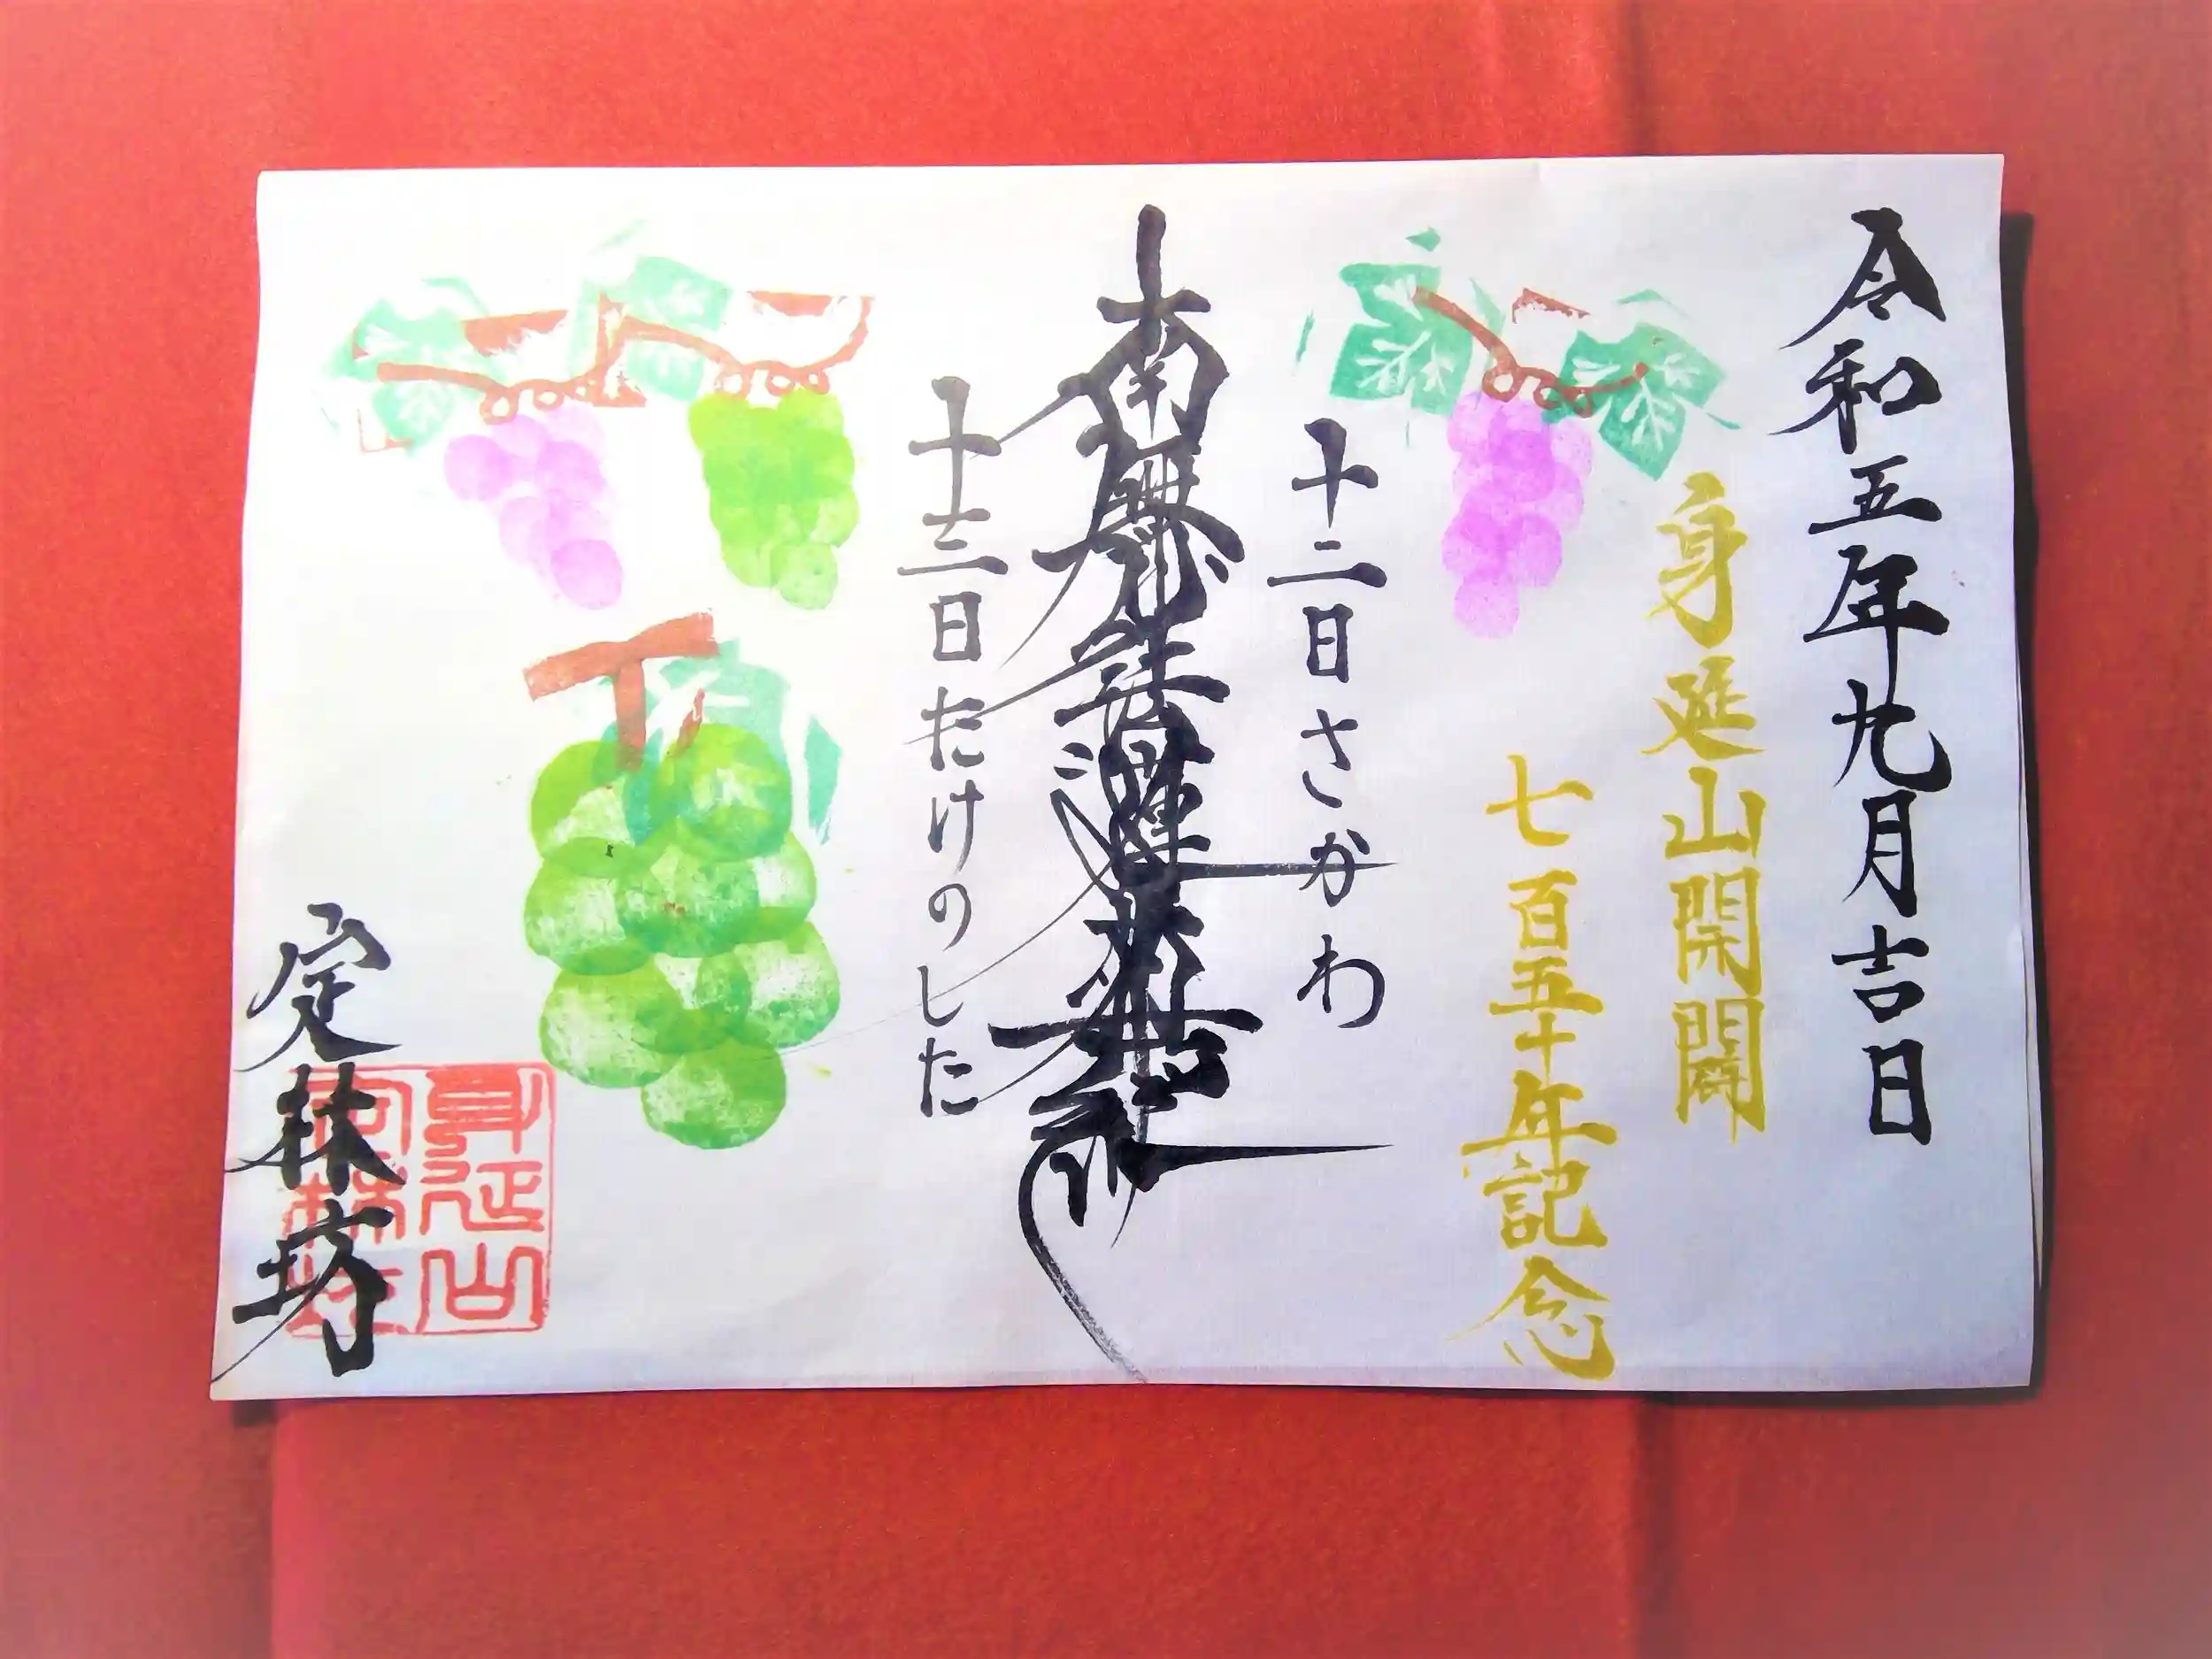 令和五年九月吉日
身延山開闢
七百五十年記念
十二日さかわ
南無妙法蓮華経
十三日たけのした
定林坊
身延山
定林坊